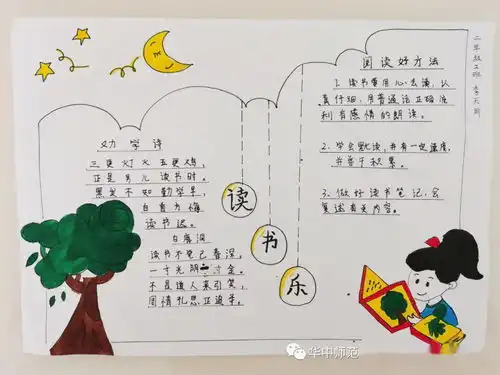 劝学诗
三更灯火五更鸡,
正是男儿读书时。
黑发不知勤学早,
白首方悔
读书迟。
白鹿洞
读书不觉已春深,
一寸光阴一寸金。
不是道人来引笑,
周情孔思正追寻。
读
书
乐
阅读好方法
1、读书要用心去读,认
真仔细,用普通话正确流
利有感情的朗读。
2、学会默读,并有一定速度,
并善于积累。
3、做好读书笔记,会
复述有关内容。
二年级2班
华中师范